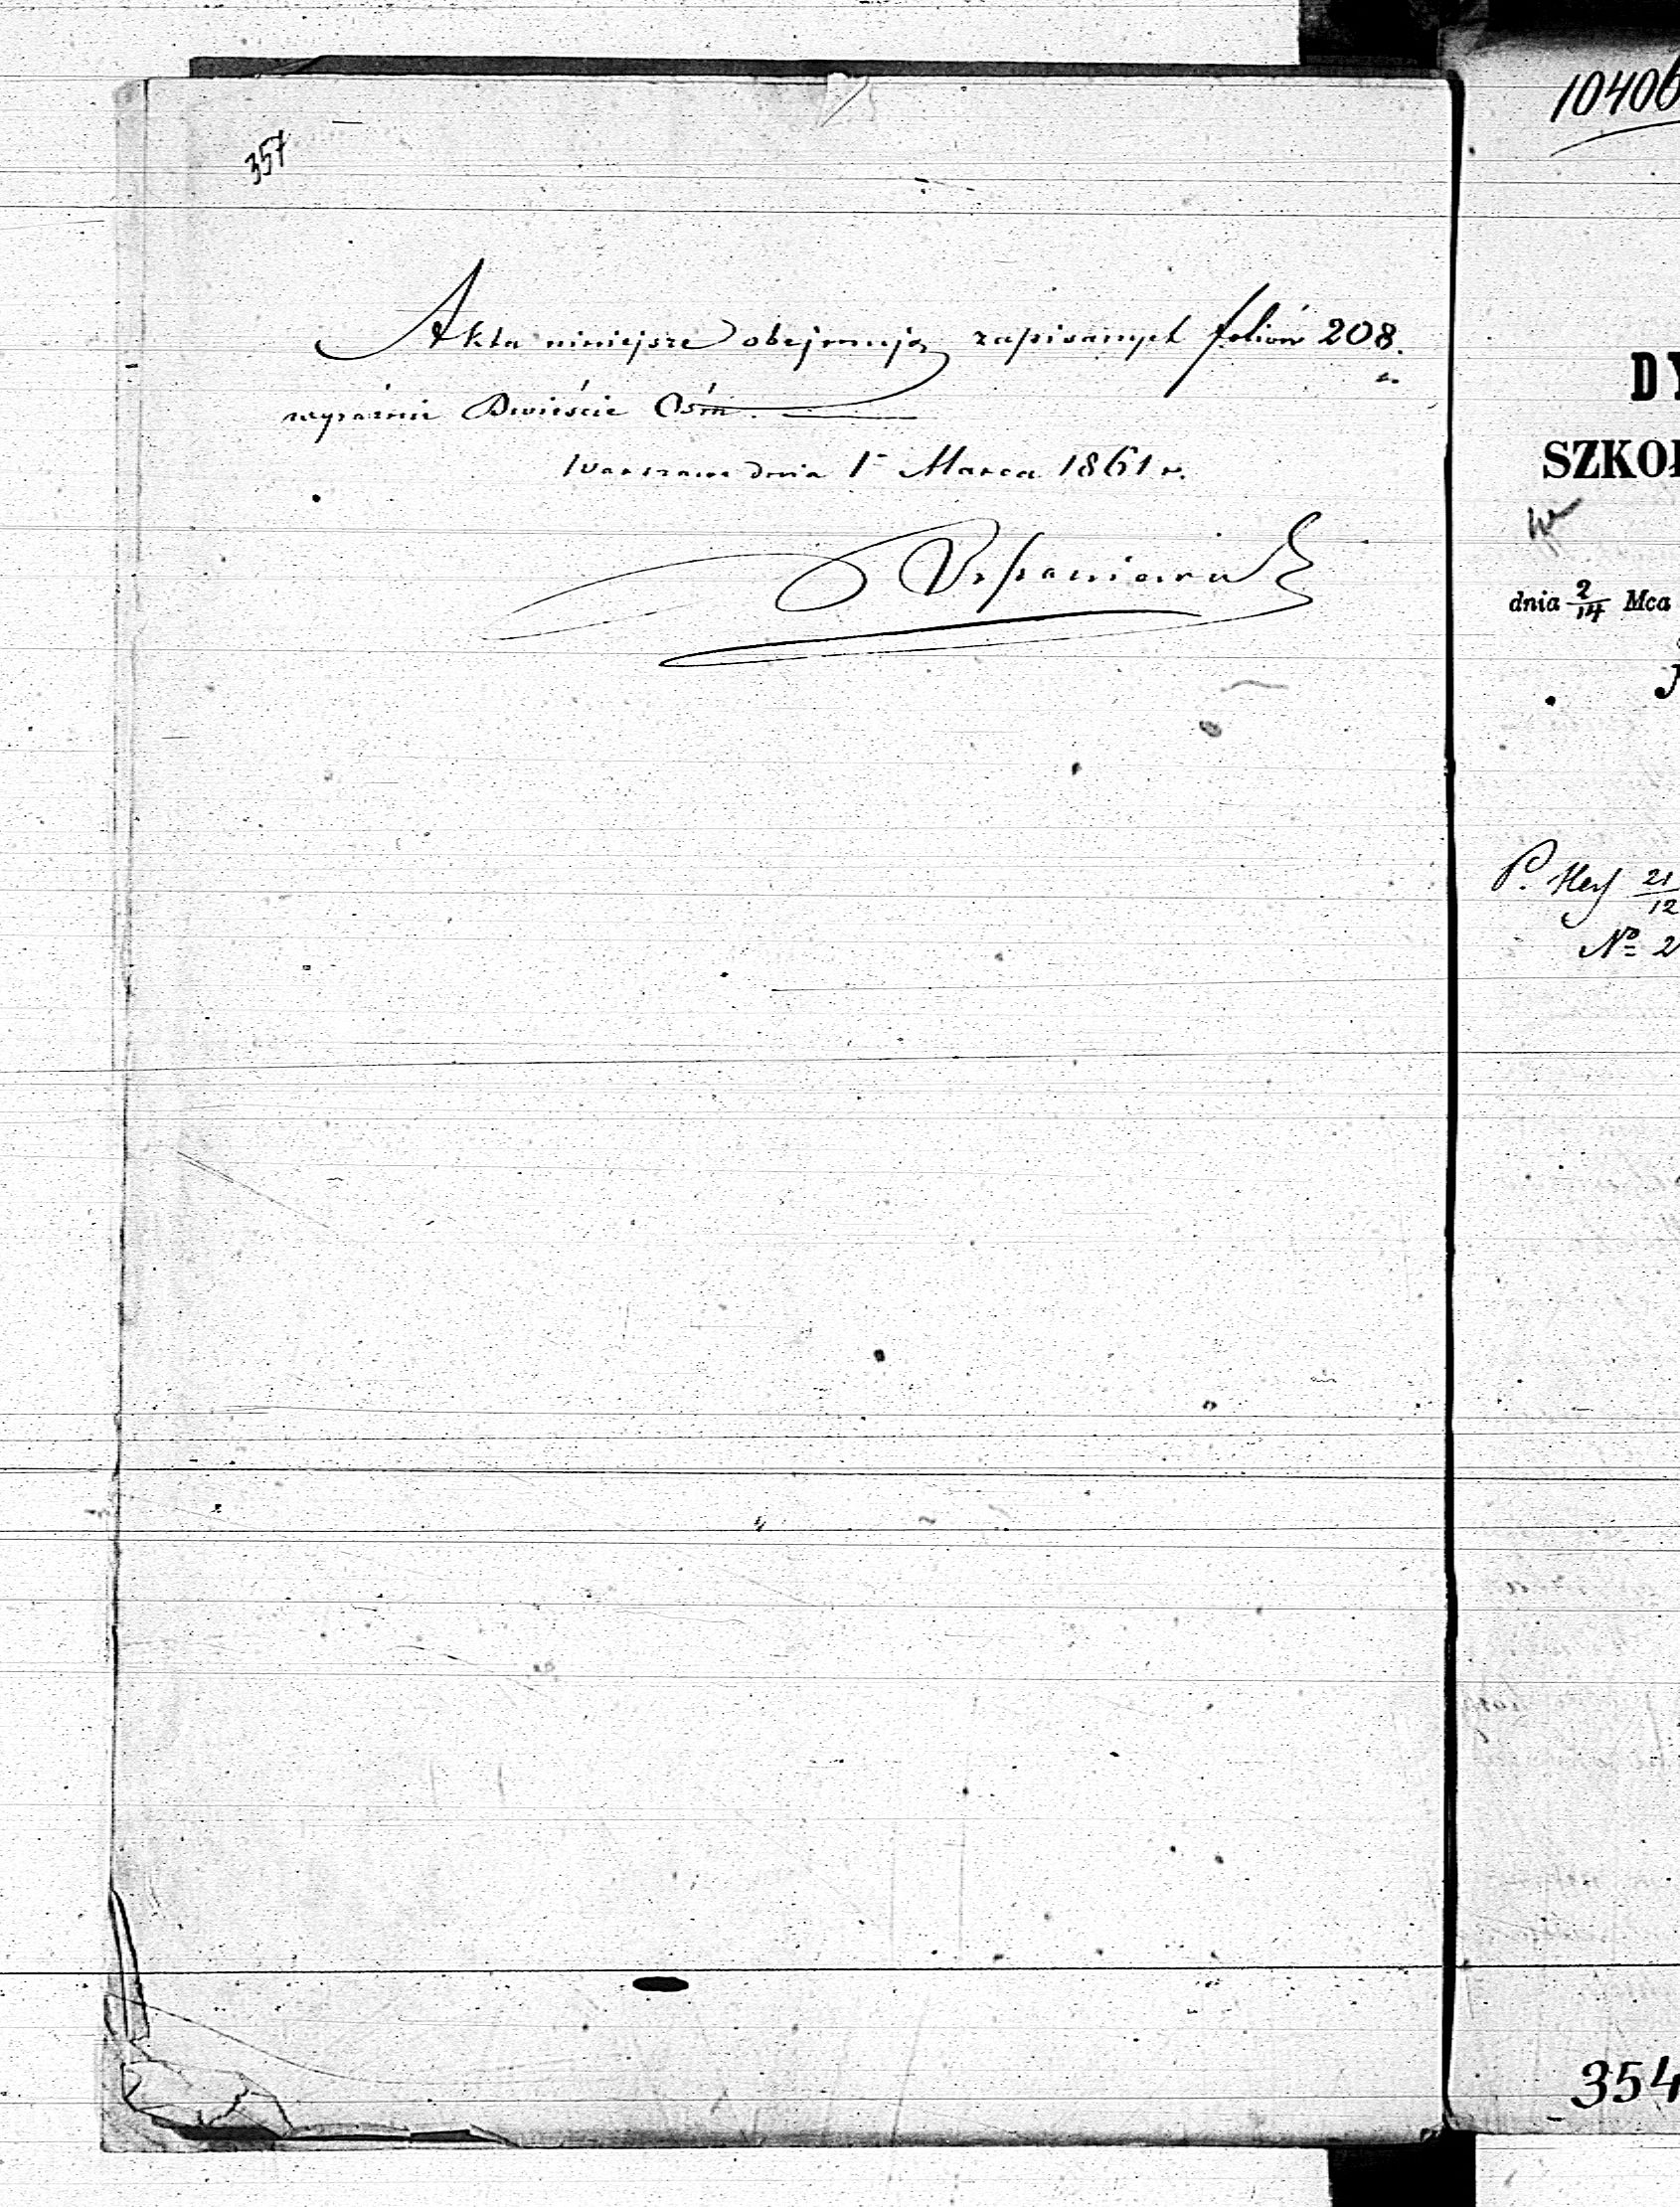 357
Akta niniejsze obejmują zapisanych foliów 208.
wyraźnie Dwieście Ośm.
Warszawa dnia 1 Marca 1861 r.
10406
DY
SZKOŁ
dnia 2/14 Mca
P. Hey 21/12
Nº 2
354